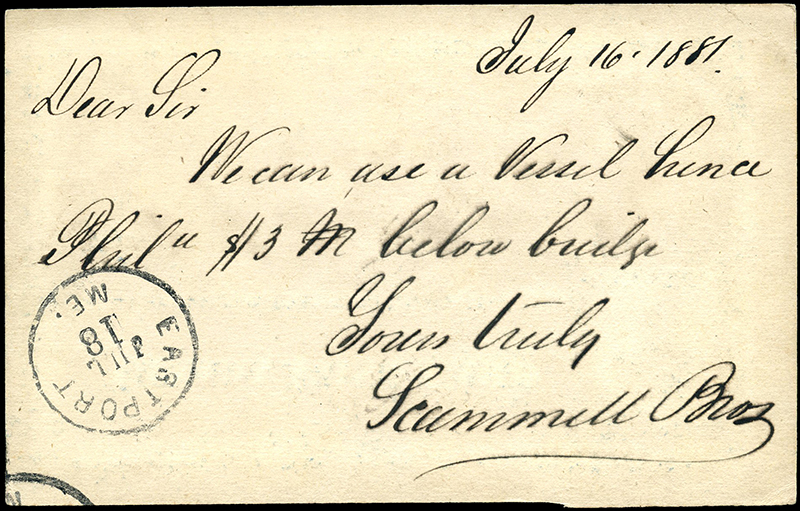 July 16. 1881.
Dear Sir
We can use a Vessel hence
Phil a $3 M below bridge
Yours truly
Scammell Bros
EASTPORT ME.
JUL
18